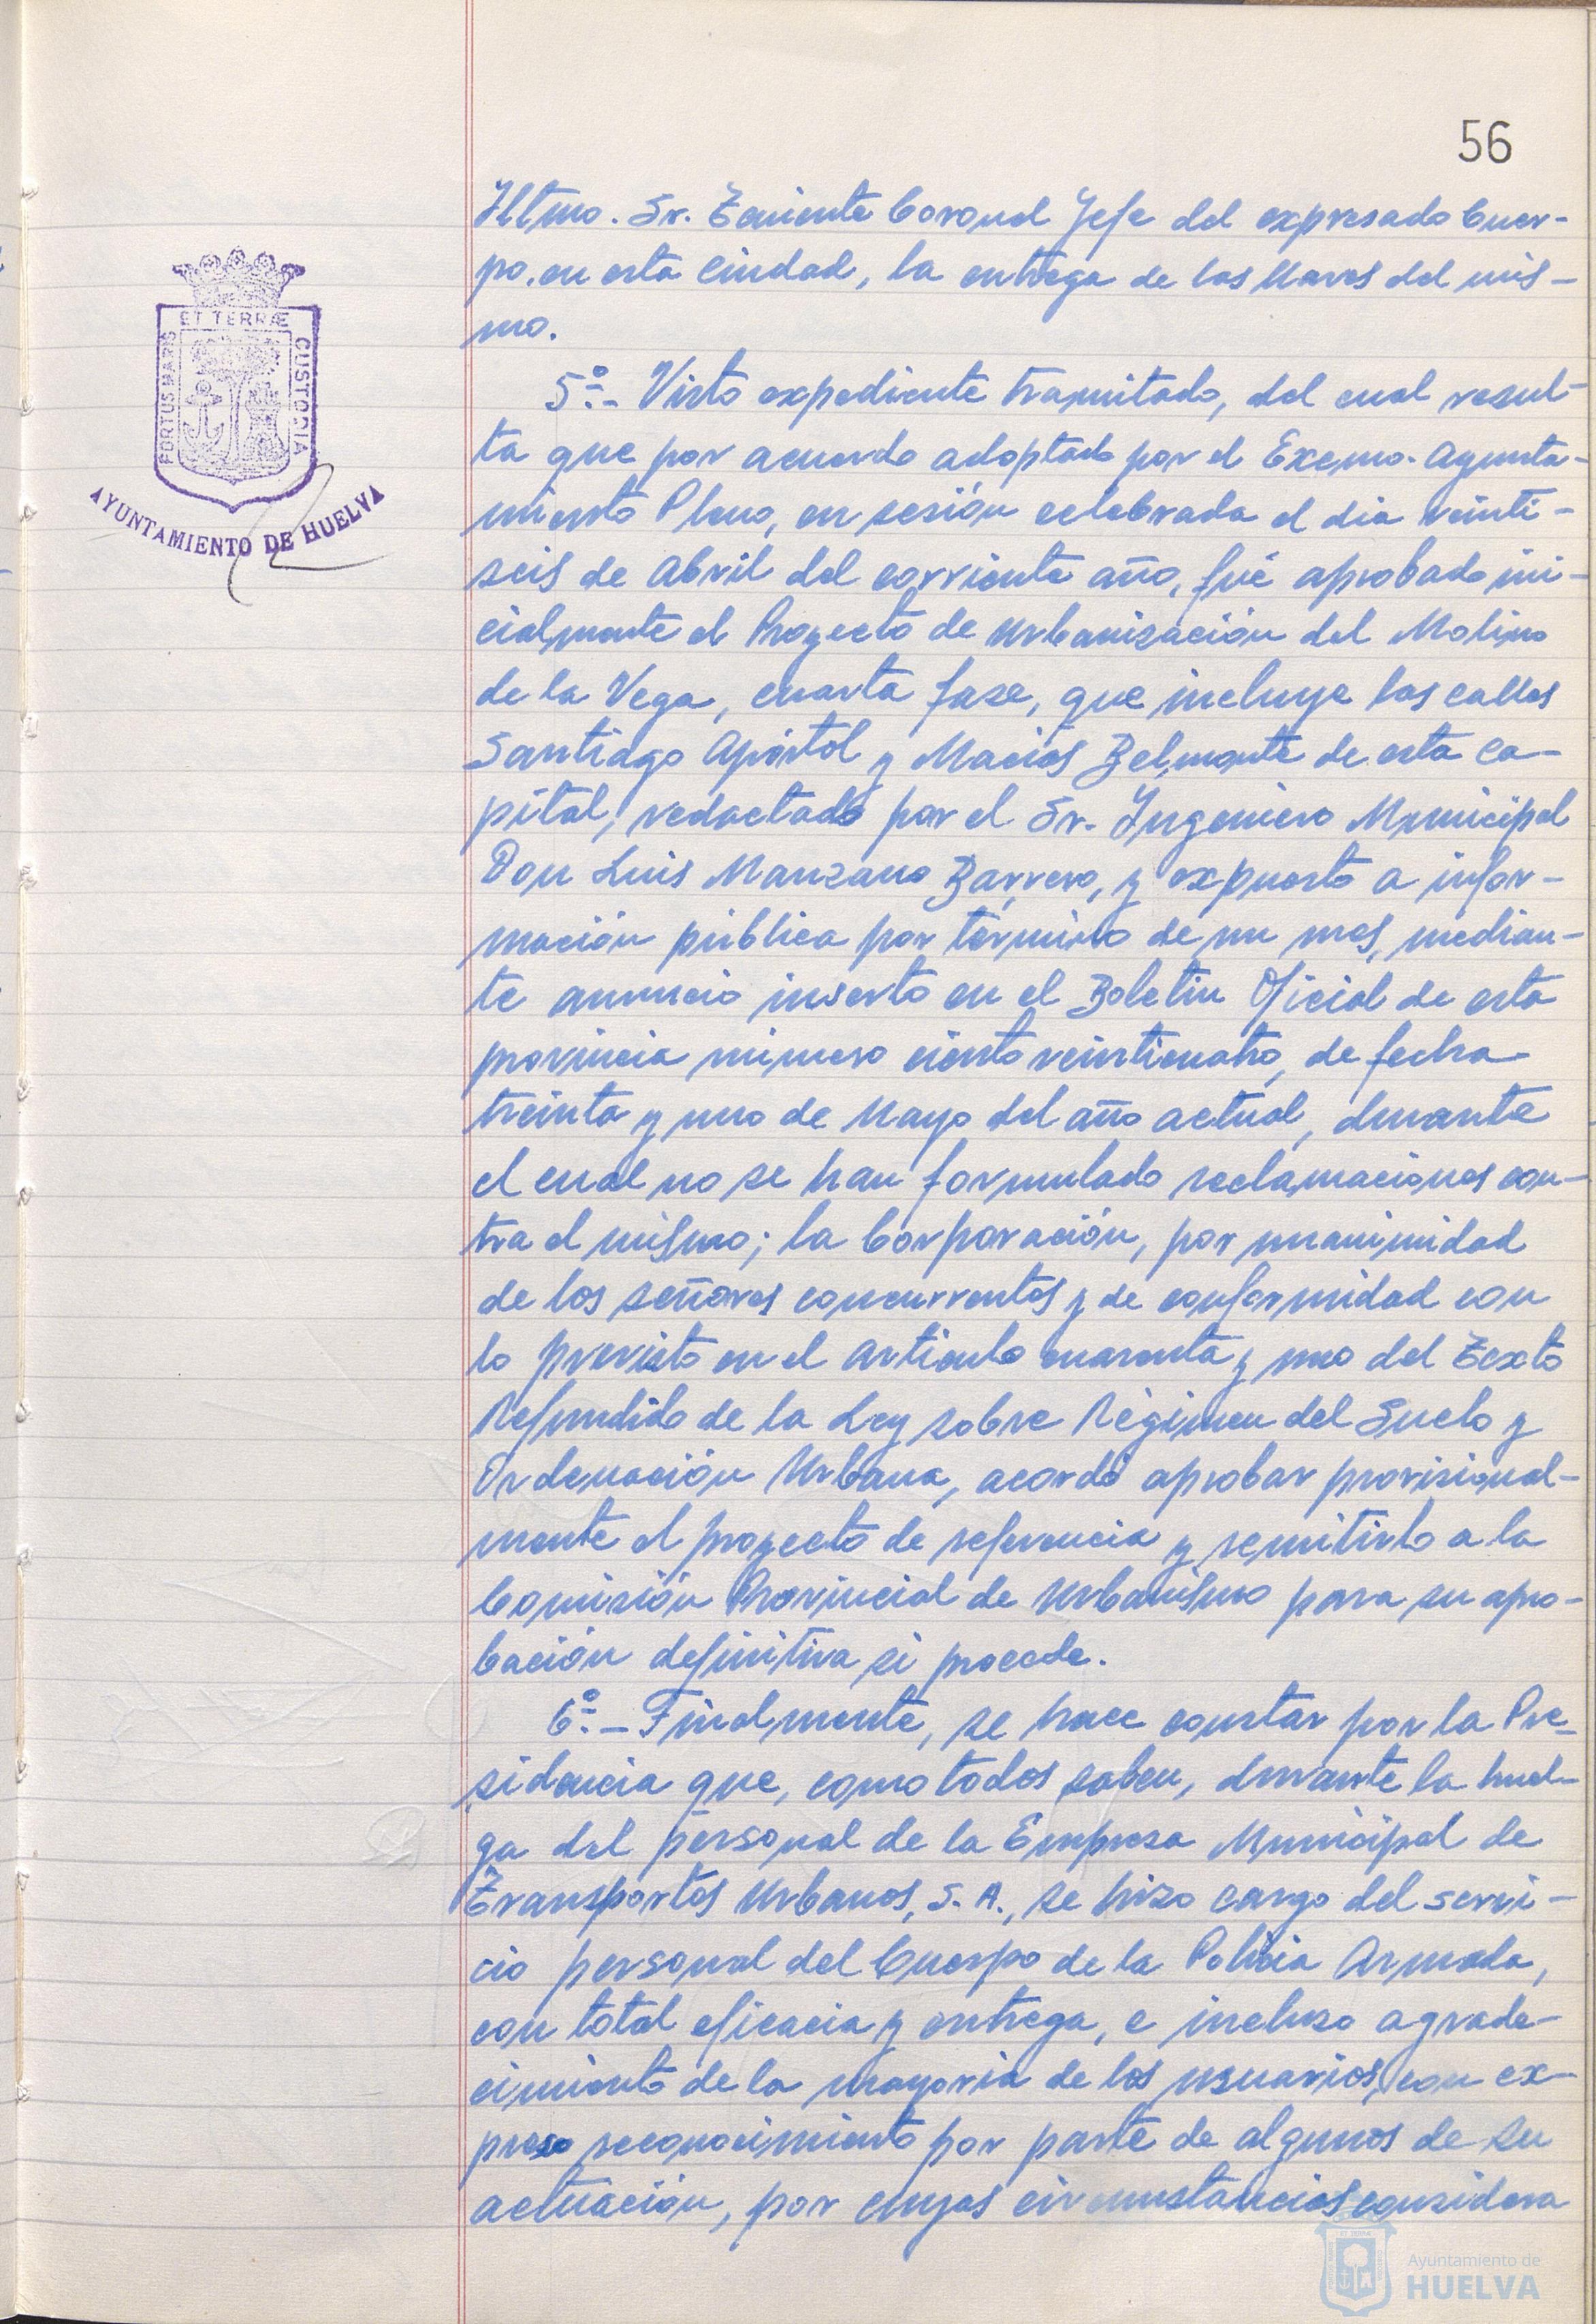 56
Iltmo. Sr. Teniente Coronel Jefe del expresado Cuer-
po, en esta Ciudad, la entrega de las llaves del mis-
mo.
5º.- Visto expediente tramitado, del cual resul-
ta que por acuerdo adoptado por el Excmo. Ayunta-
miento Pleno, en sesión celebrada el dia veinti-
seis de Abril del corriente año, fué aprobado ini-
cialmente el Proyecto de Urbanización del Molino
de la Vega, cuarta fase, que incluye las calles
Santiago Apóstol y Macías Belmonte de esta ca-
pital, redactado por el Sr. Ingeniero Municipal
Don Luis Manzano Barrero, y expuesto a infor-
mación pública por término de un mes, median-
te anuncio inserto en el Boletin Oficial de esta
provincia número ciento veinticuatro, de fecha
treinta y uno de Mayo del año actual, durante
el cual no se han formulado reclamaciones con-
tra el mismo; la Corporación, por unanimidad
de los señores concurrentes y de conformidad con
lo previsto en el articulo cuarenta y uno del Texto
Refundido de la Ley sobre Régimen del Suelo y
Ordenación Urbana, acordó aprobar provisional-
mente el proyecto de referencia y remitirlo a la
Comisión Provincial de Urbanismo para su apro-
bación definitiva si procede.
6º.- Finalmente, se hace constar por la Pre-
sidencia que, como todos saben, durante la huel-
ga del personal de la Empresa Municipal de
Transportes Urbanos, S.A., se hizo cargo del servi-
cio personal del Cuerpo de la Policia Armada,
con total eficacia y entrega, e incluso agrade-
cimiento de la mayoria de los usuarios, con ex-
preso reconocimiento por parte de algunos de su
actuación, por cuyas circunstancias considera
PORTUS MARIS
ET TERRÆ
CUSTODIA
AYUNTAMIENTO DE HUELVA
Ayuntamiento de
HUELVA